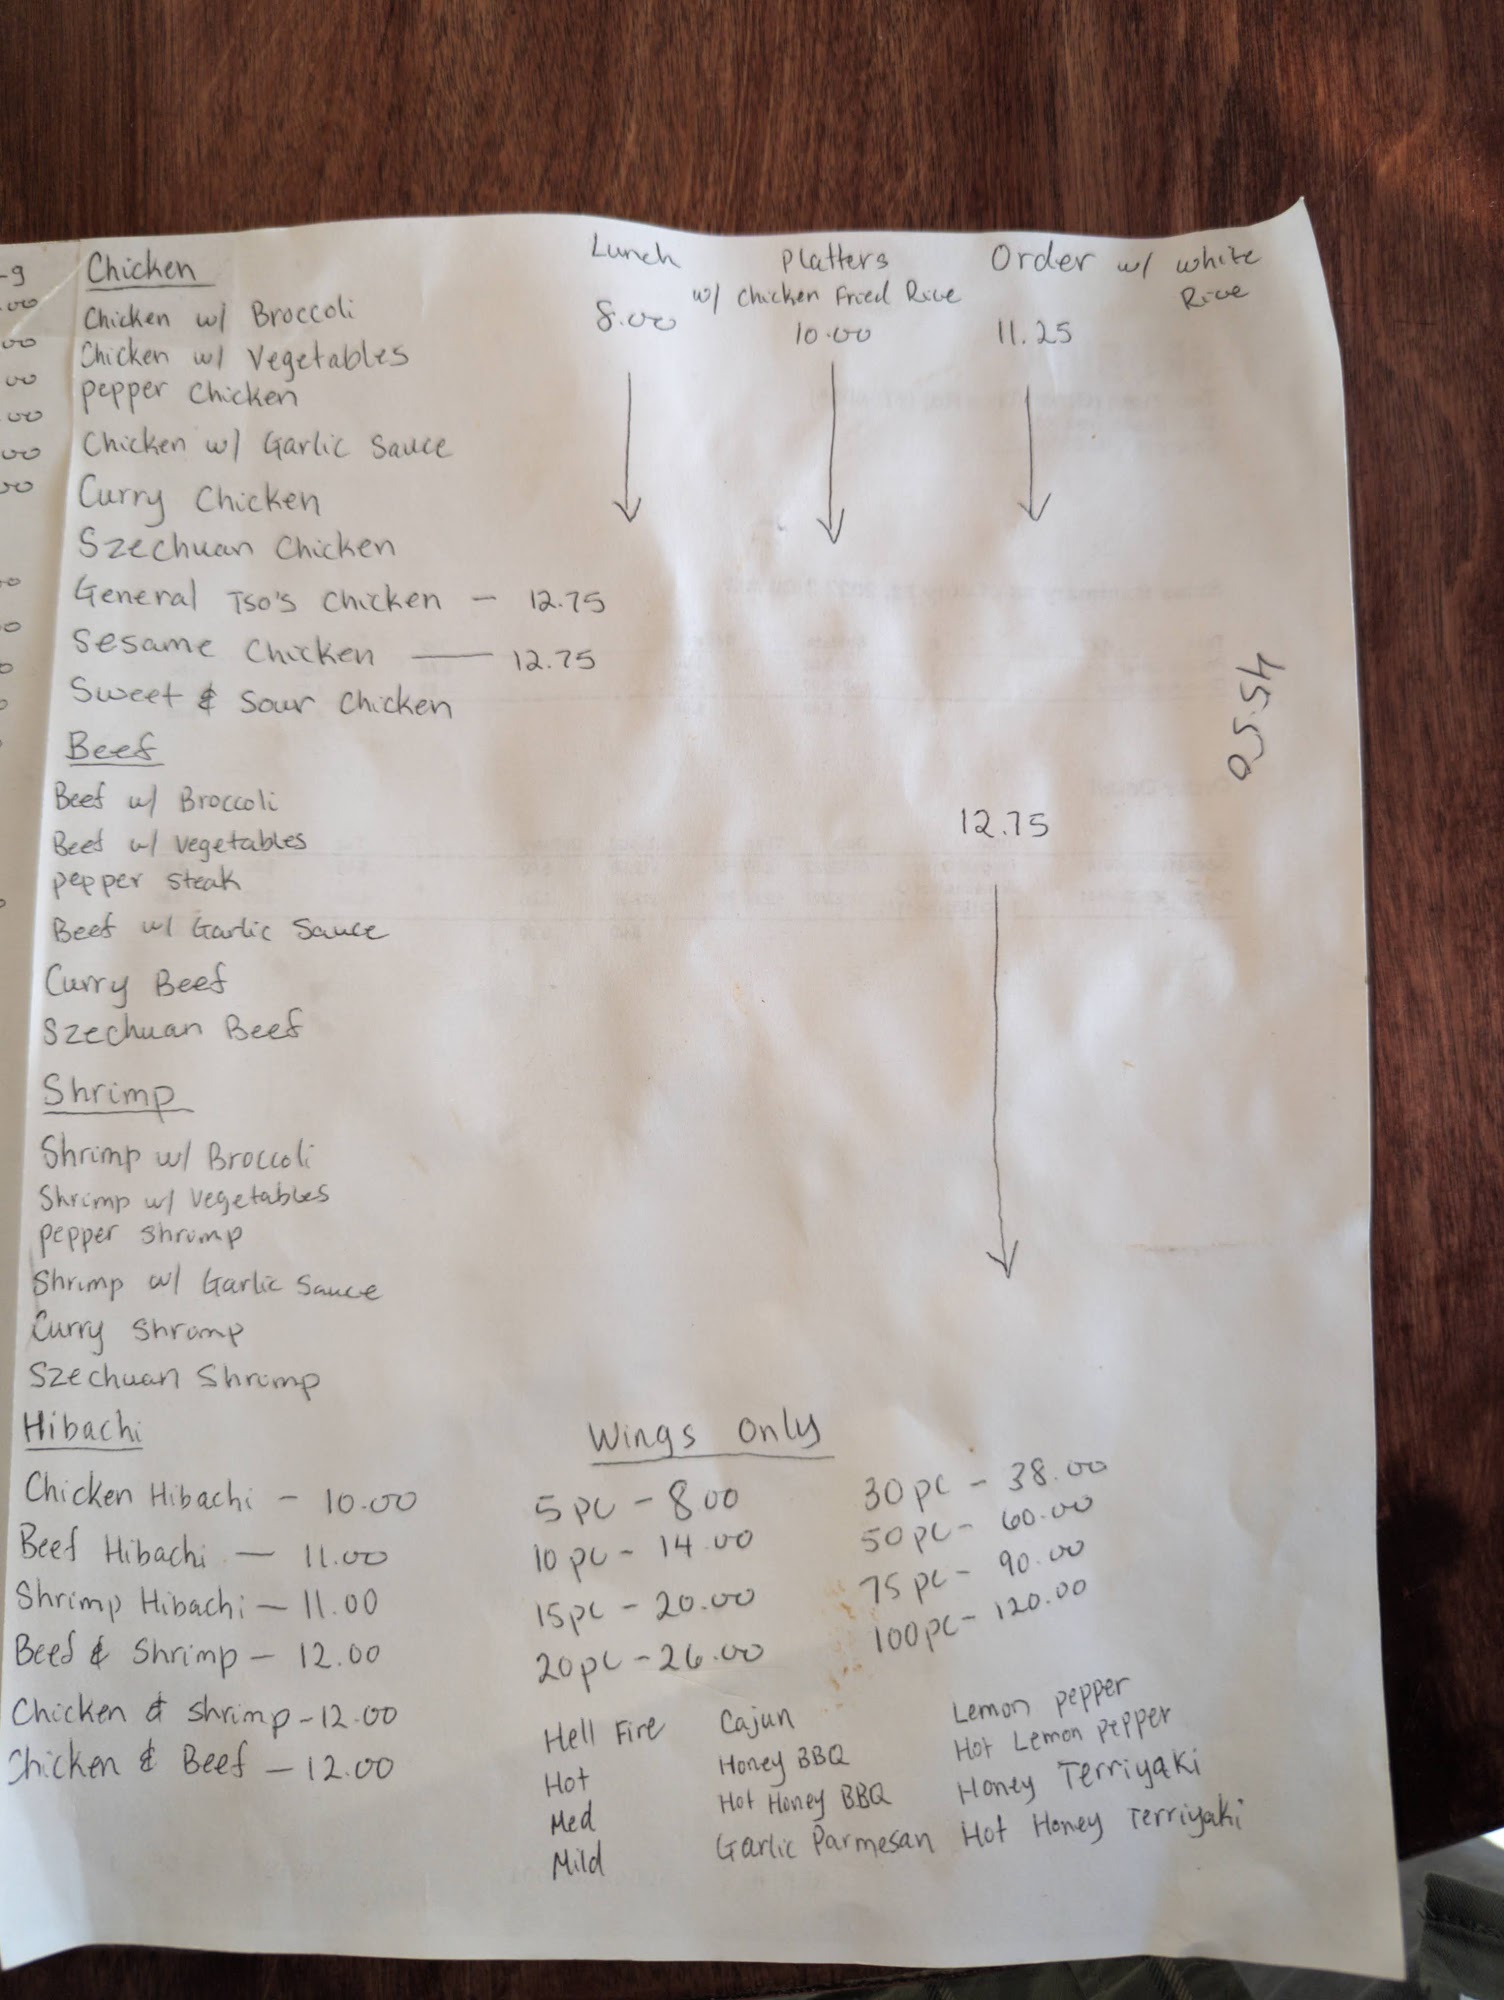 Chicken
Lunch
Platters
Order w/ white
w/ Chicken Fried Rice
Rice
Chicken w/ Broccoli
8.00
10.00
11.25
Chicken w/ Vegetables
pepper Chicken
Chicken w/ Garlic Sauce
Curry Chicken
Szechuan Chicken
General Tso's Chicken - 12.75
Sesame Chicken — 12.75
Sweet & Sour Chicken
Beef
Beef w/ Broccoli
12.75
Beef w/ Vegetables
pepper steak
Beef w/ Garlic Sauce
Curry Beef
Szechuan Beef
Shrimp
Shrimp w/ Broccoli
Shrimp w/ Vegetables
pepper shrimp
Shrimp w/ Garlic Sauce
Curry Shrimp
Szechuan Shrimp
Hibachi
Chicken Hibachi - 10.00
Beef Hibachi — 11.00
Shrimp Hibachi — 11.00
Beef & Shrimp — 12.00
Chicken & shrimp - 12.00
Chicken & Beef — 12.00
Wings Only
5 pc - 8 00
10 pc - 14.00
15 pc - 20.00
20 pc - 26.00
30 pc - 38.00
50 pc - 60.00
75 pc - 90.00
100 pc - 120.00
Hell Fire
Hot
Med
Mild
Cajun
Honey BBQ
Hot Honey BBQ
Garlic Parmesan
Lemon pepper
Hot Lemon pepper
Honey Terriyaki
Hot Honey Terriyaki